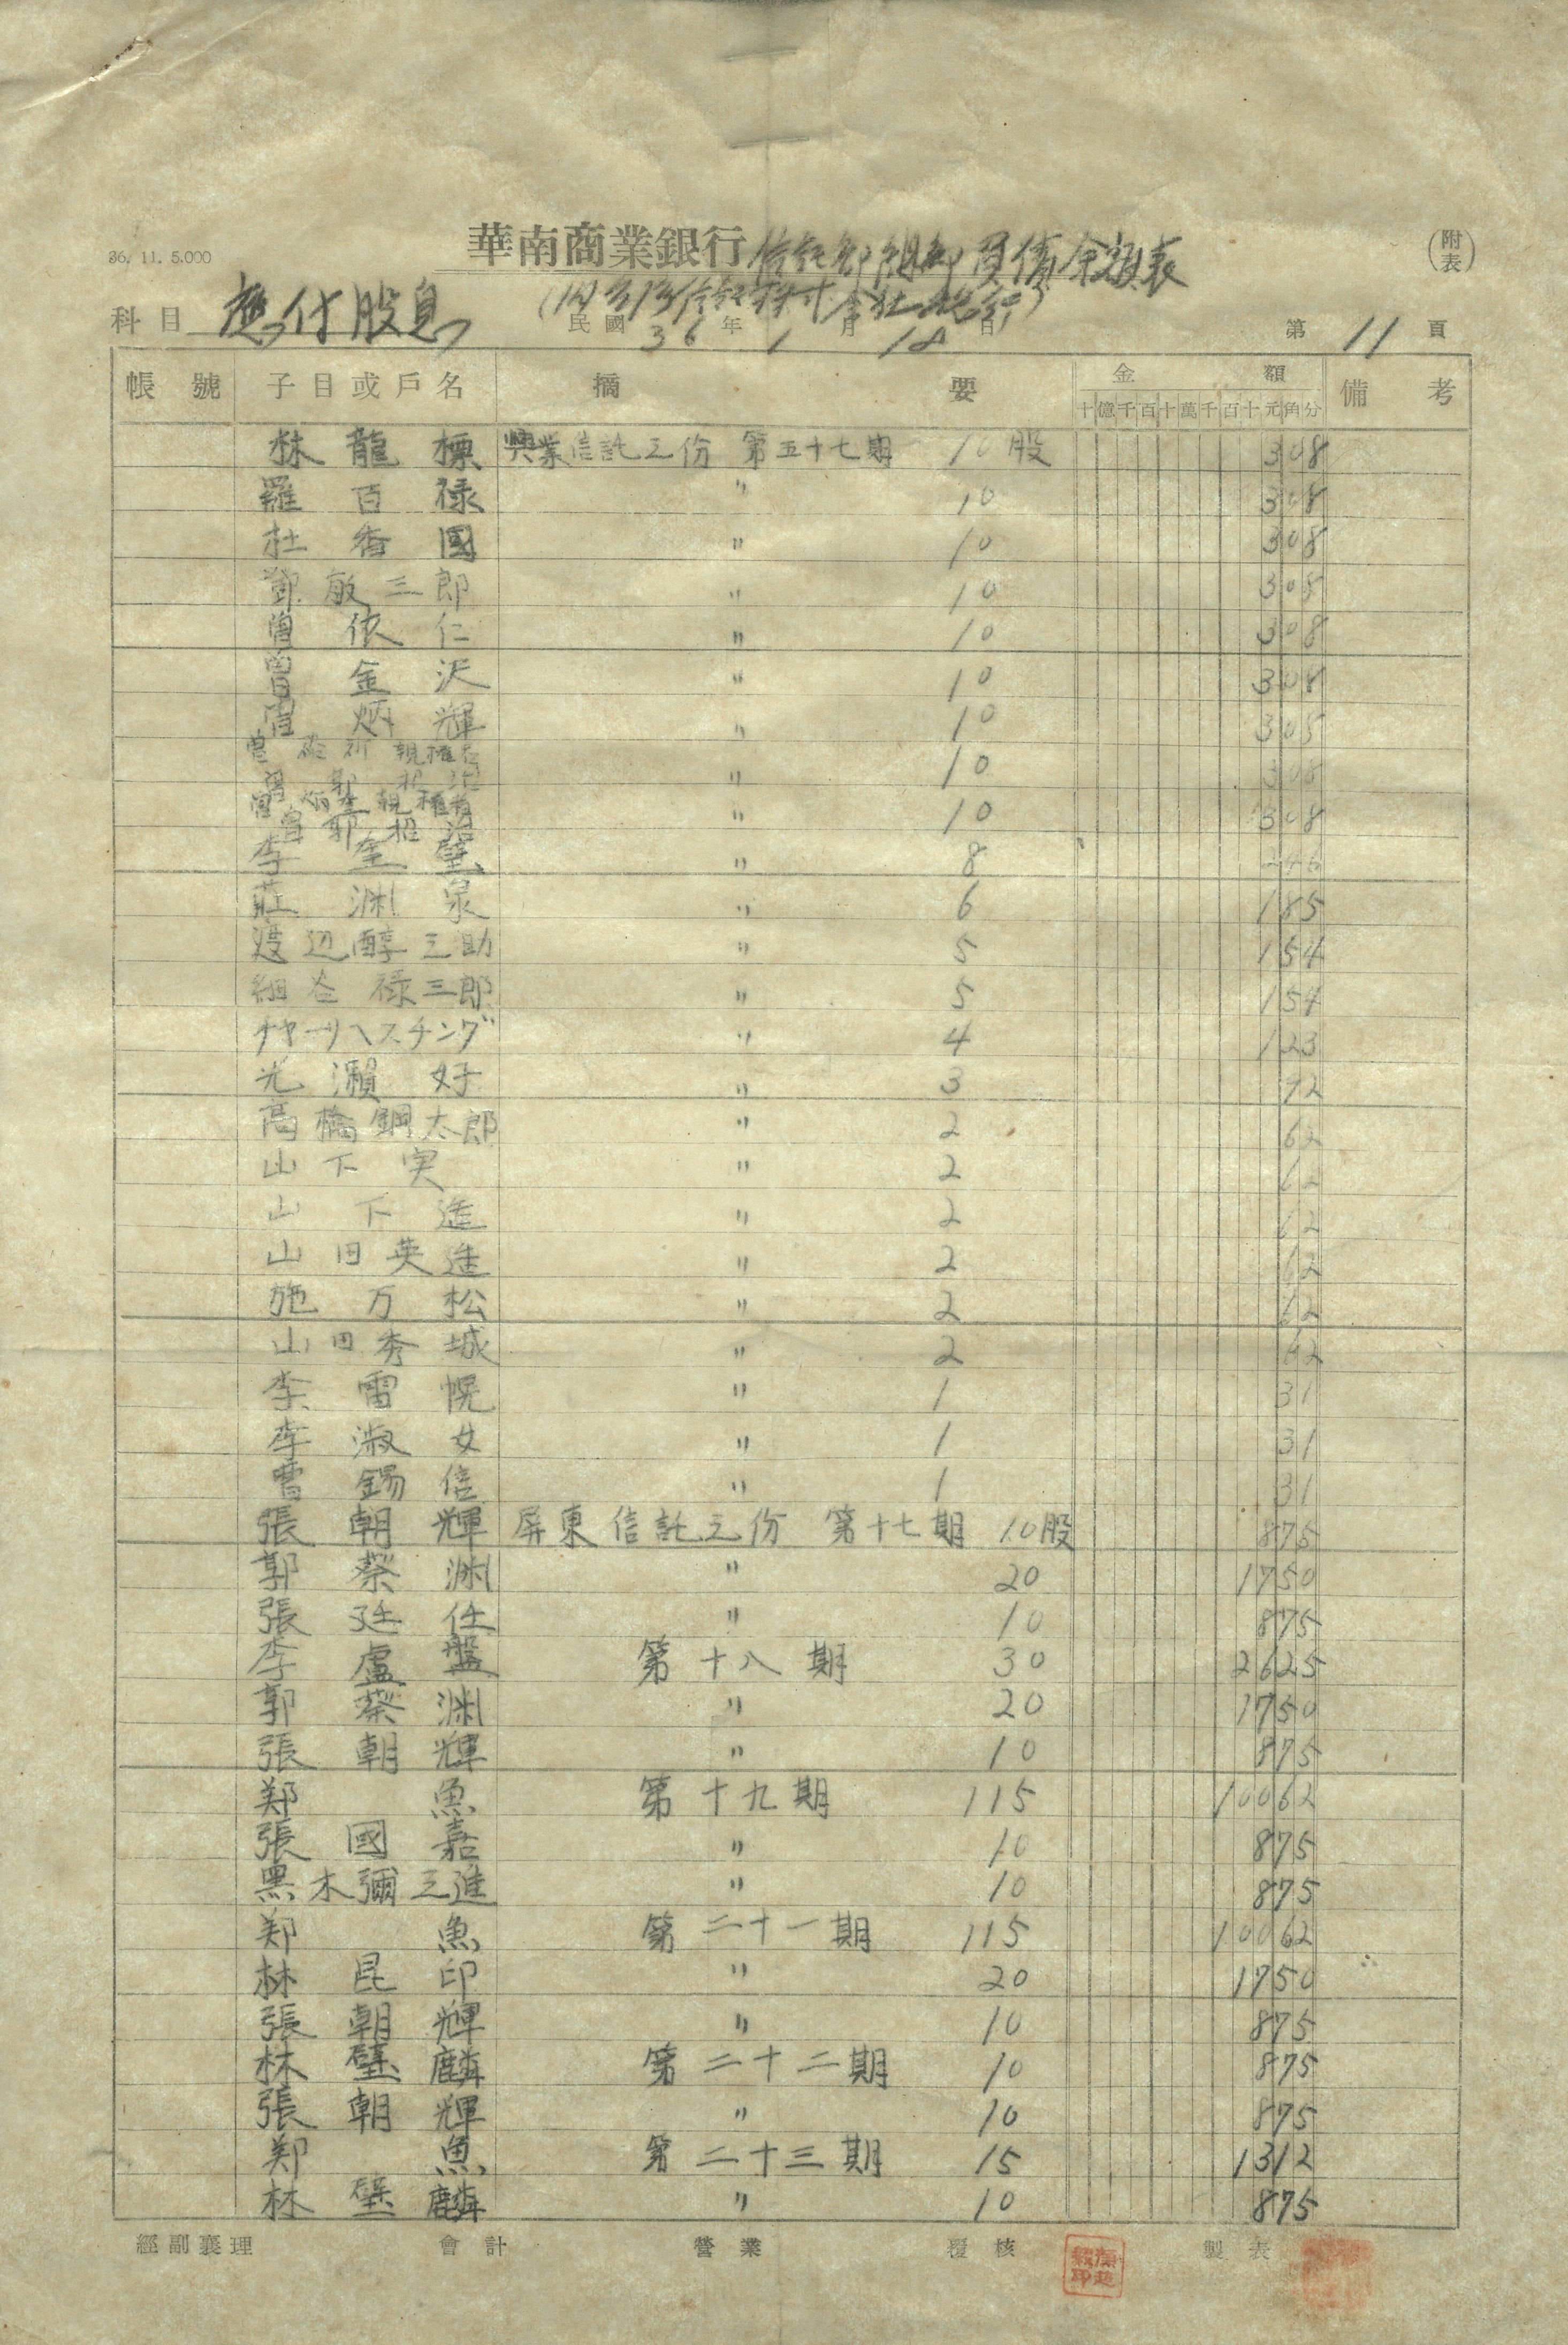 36. 11. 5.000
華南商業銀行信託部開部負債余額表
(附表)
科目 應付股息
民國 36 年 1 月 18 日
第 11 頁
帳號 子目或戶名 摘要 金額 備考
十億千百十萬千百十元角分
林龍標 興業信託之份 第五十七期 10股 308
羅百祿 〃 10 308
杜香國 〃 10 308
鄧敏三郎 〃 10 308
曾依仁 〃 10 308
曾金沢 〃 10 308
曾炳輝 〃 10 308
曾 親權者
曾郭招治 〃 10 308
曾 親權者
曾郭招治 〃 10 308
李金璧 〃 8 246
莊渊泉 〃 6 185
渡辺醇三助 〃 5 154
細谷祿三郎 〃 5 154
チヤーリヘスチング 〃 4 123
光瀨好 〃 3 92
高橋鋼太郎 〃 2 62
山下実 〃 2 62
山下造 〃 2 62
山田英造 〃 2 62
施万松 〃 2 62
山田秀城 〃 2 62
李雷幌 〃 1 31
李淑女 〃 1 31
曹錫信 〃 1 31
張朝輝 屏東信託之份 第十七期 10股 875
郭蔡渊 〃 20 1750
張廷任 〃 10 875
李盧盤 第十八期 30 2625
郭蔡渊 〃 20 1750
張朝輝 〃 10 875
郑魚 第十九期 115 10062
張國嘉 〃 10 875
黑木彌三進 〃 10 875
郑魚 第二十一期 115 10062
林昆印 〃 20 1750
張朝輝 〃 10 875
林璧麟 第二十二期 10 875
張朝輝 〃 10 875
郑魚 第二十三期 15 1312
林璧麟 〃 10 875
經副襄理 會計 營業 覆核 製表